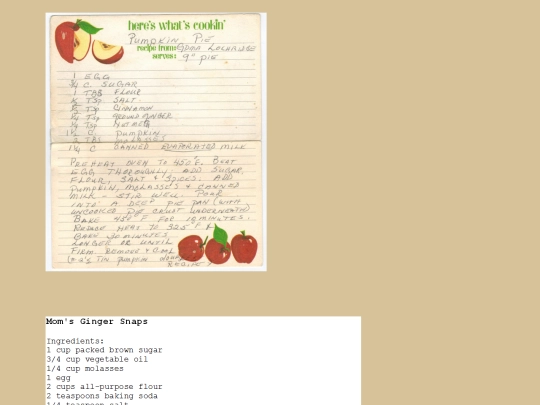 here's what's cookin'
PUMPKIN PIE
recipe from: EDNA
serves: 9" pie
1 EGG
3/4 C SUGAR
1 TAB FLOUR
TSP SALT
TSP CINNAMON
TSP GROUND GINGER
TSP
1 1/2 C. PUMPKIN
2 TBS MOLASSES
1 1/4 C CANNED EVAPORATED MILK
PREHEAT OVEN TO 450°F. BEAT
EGG THOROUGHLY. ADD SUGAR,
FLOUR, SALT & SPICES. ADD
PUMPKIN, MOLASSES & CANNED
MILK - STIR WELL. POUR
INTO A DEEP PIE PAN (WITH
UNCOOKED PIE CRUST UNDERNEATH)
BAKE 450°F FOR 10 MINUTES.
REDUCE HEAT TO 325°F &
BAKE 30 MINUTES
LONGER OR UNTIL
FIRM. REMOVE & COOL
TIN PUMPKIN
RECIPE
Mom's Ginger Snaps
Ingredients:
1 cup packed brown sugar
3/4 cup vegetable oil
1/4 cup molasses
1 egg
2 cups all-purpose flour
2 teaspoons baking soda
1/4 teaspoon salt